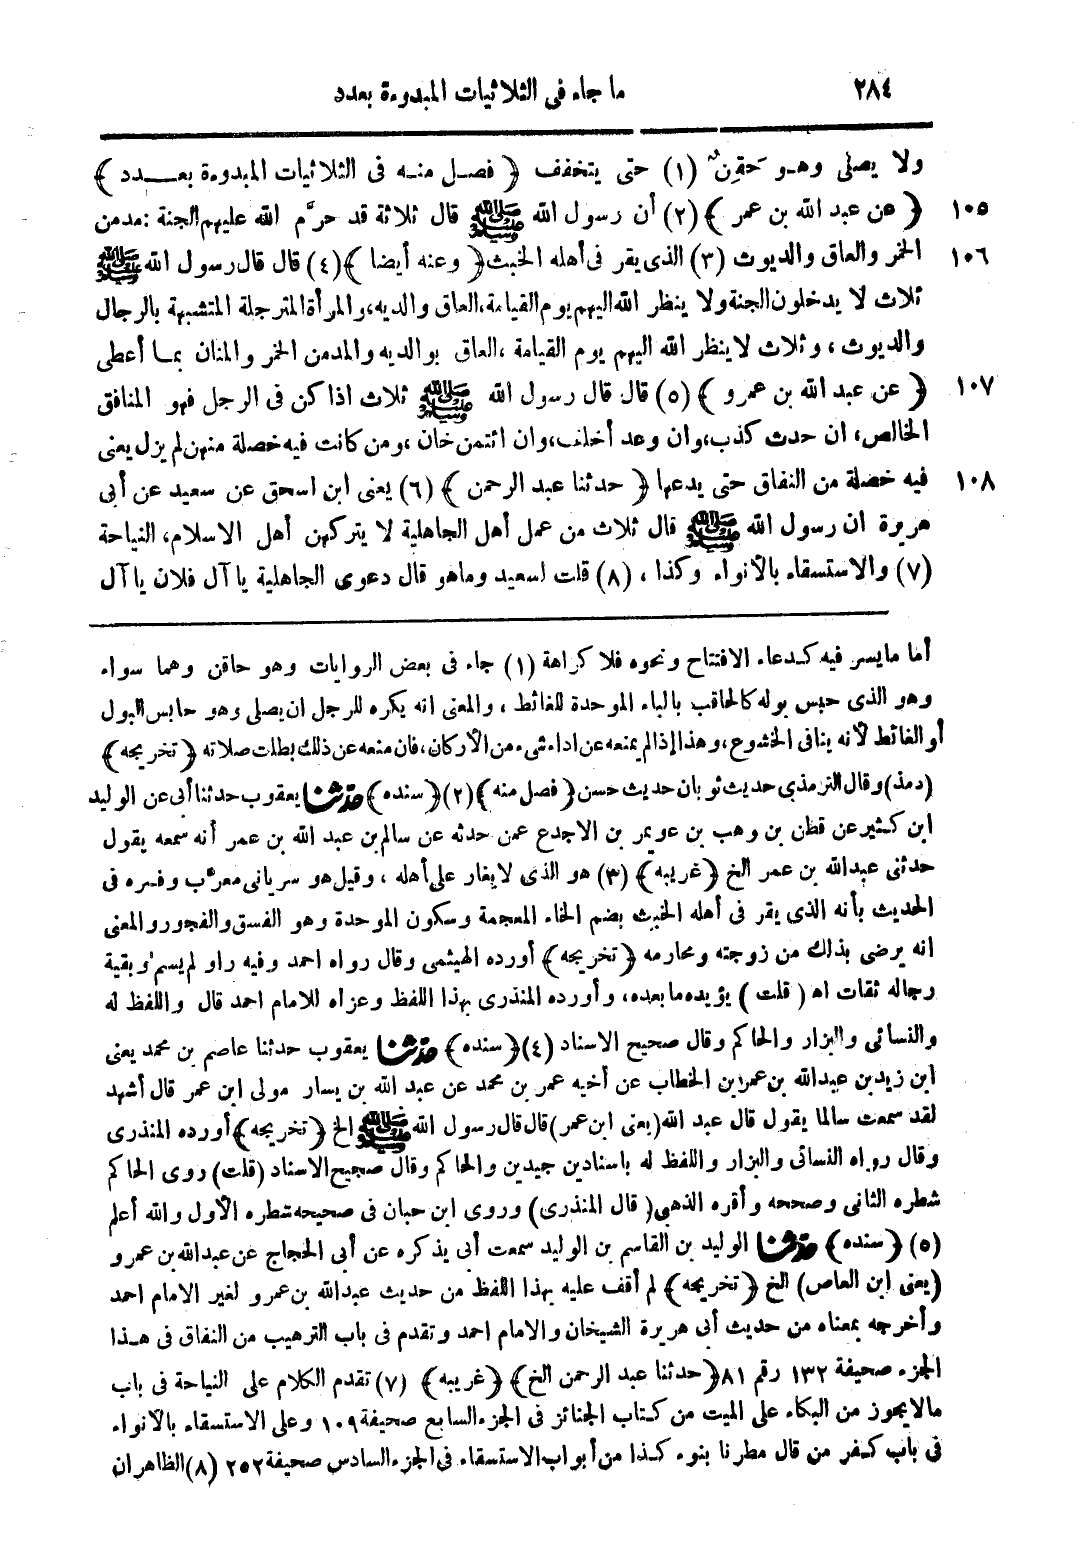 ٢٨٤ ما جاء فى الثلاثيات المبدوءة بعدد
ولا يصلى وهو حَقِنٌ (١) حتى يتخفف ﴿ فصل منه فى الثلاثيات المبدوءة بعدد ﴾
١٠٥ ﴿ عن عبد الله بن عمر ﴾ (٢) أن رسول الله ﷺ قال ثلاثة قد حرَّم الله عليهم الجنة : مدمن
١٠٦ الخمر والعاق والديوث (٣) الذى يقر فى أهله الخبث ﴿ وعنه أيضا ﴾ (٤) قال قال رسول الله ﷺ
ثلاث لا يدخلون الجنة ولا ينظر الله اليهم يوم القيامة، العاق والديه، والمرأة المترجلة المتشبهة بالرجال
والديوث، وثلاث لا ينظر الله اليهم يوم القيامة، العاق بوالديه والمدمن الخمر والمنان بما أعطى
١٠٧ ﴿ عن عبد الله بن عمرو ﴾ (٥) قال قال رسول الله ﷺ ثلاث اذا كن فى الرجل فهو المنافق
الخالص، ان حدث كذب، وان وعد أخلف، وان ائتمن خان، ومن كانت فيه خصلة منهن لم يزل يعنى
١٠٨ فيه خصلة من النفاق حتى يدعها ﴿ حدثنا عبد الرحمن ﴾ (٦) يعنى ابن اسحق عن سعيد عن أبى
هريرة ان رسول الله ﷺ قال ثلاث من عمل أهل الجاهلية لا يتركهن أهل الاسلام، النياحة
(٧) والاستسقاء بالأنواء وكذا، (٨) قلت لسعيد وماهو قال دعوى الجاهلية يا آل فلان يا آل
أما مايسر فيه كدعاء الافتتاح ونحوه فلا كراهة (١) جاء فى بعض الروايات وهو حاقن وهما سواء
وهو الذى حبس بوله كالحاقب بالباء الموحدة للغائط، والمعنى انه يكره للرجل ان يصلى وهو حابس البول
أو الغائط لأنه ينافى الخشوع، وهذا إذا لم يمنعه عن اداء شىء من الأركان، فان منعه عن ذلك بطلت صلاته ﴿ تخريجه ﴾
(د مذ) وقال الترمذي حديث ثوبان حديث حسن ﴿ فصل منه ﴾ (٢) ﴿ سنده ﴾ حدثنا يعقوب حدثنا أبى عن الوليد
ابن كثير عن قطن بن وهب بن عويمر بن الاجدع عمن حدثه عن سالم بن عبد الله بن عمر أنه سمعه يقول
حدثنى عبدالله بن عمر الخ ﴿ غريبه ﴾ (٣) هو الذى لا يغار على أهله، وقيل هو سريانى معرَّب وفسره فى
الحديث بأنه الذى يقر فى أهله الخبث بضم الخاء المعجمة وسكون الموحدة وهو الفسق والفجور والمعنى
انه يرضى بذلك من زوجته ومحارمه ﴿ تخريجه ﴾ أورده الهيثمى وقال رواه احمد وفيه راو لم يسم وبقية
رجاله ثقات اه ( قلت ) يؤيده ما بعده، وأورده المنذرى بهذا اللفظ وعزاه للامام احمد قال واللفظ له
والنسائى والبزار والحاكم وقال صحيح الاسناد (٤) ﴿ سنده ﴾ حدثنا يعقوب حدثنا عاصم بن محمد يعنى
ابن زيد بن عبدالله بن عمر ابن الخطاب عن أخيه عمر بن محمد عن عبد الله بن يسار مولى ابن عمر قال أشهد
لقد سمعت سالما يقول قال عبد الله (يعنى ابن عمر) قال قال رسول الله ﷺ الخ ﴿ تخريجه ﴾ أورده المنذرى
وقال رواه النسائى والبزار واللفظ له باسنادين جيدين والحاكم وقال صحيح الاسناد (قلت) روى الحاكم
شطره الثانى وصححه وأقره الذهبى ( قال المنذرى ) وروى ابن حبان فى صحيحه شطره الأول والله أعلم
(٥) ﴿ سنده ﴾ حدثنا الوليد بن القاسم بن الوليد سمعت أبى يذكره عن أبى الحجاج عن عبدالله بن عمرو
(يعنى ابن العاص) الخ ﴿ تخريجه ﴾ لم أقف عليه بهذا اللفظ من حديث عبدالله بن عمرو لغير الامام احمد
وأخرجه بمعناه من حديث أبى هريرة الشيخان والامام احمد وتقدم فى باب الترهيب من النفاق فى هذا
الجزء صحيفة ١٣٢ رقم ٨١ ﴿ حدثنا عبد الرحمن الخ ﴾ ﴿ غريبه ﴾ (٧) تقدم الكلام على النياحة فى باب
مالا يجوز من البكاء على الميت من كتاب الجنائز فى الجزء السابع صحيفة ١٠٩ وعلى الاستسقاء بالأنواء
فى باب كفر من قال مطرنا بنوء كذا من أبواب الاستسقاء فى الجزء السادس صحيفة ٢٥٢ (٨) الظاهر ان